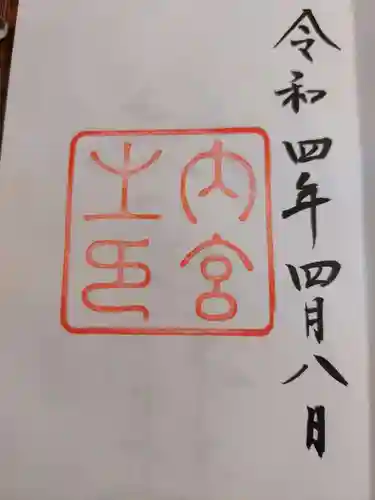 令和四年四月八日
内宮
之印